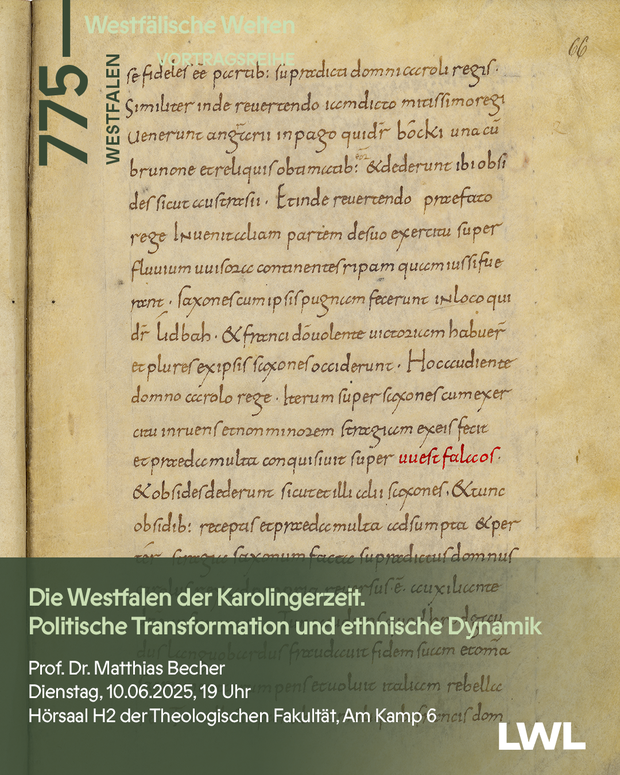 775—
WESTFALEN
Westfälische Welten
VORTRAGSREIHE
66
se fideles eē partib: supradicti domni caroli regis ·
Similiter inde reuertendo iamdicto mitissimo regi
uenerunt angrarii in pago qui dr̄ bocki una cū
brunone et reliquis obtimatib: & dederunt ibi obsi
des sicut austrasii · Et inde reuertendo praefato
rege Inuenit aliam partem de suo exercitu super
fluuium uuisora continentes ripam quam iussi fue
rant · saxones cum ipsis pugnam fecerunt in loco qui
dr̄ Lidbah · & franci dō uolente uictoriam habuer̄
et plures ex ipsis saxones occiderunt · Hoc audiente
domno carolo rege · Iterum super saxones cum exer
citu inruens et non minorem stragiam ex eis fecit
et praeda multa conquisiuit super uuestfalaos ·
& obsides dederunt sicut et illi alii saxones · & tunc
obsidib: receptis et praeda multa adsumpta & per
ter̄ stragia saxonum facta supradictus domnus
auxiliante
fraudauit fidem suam et
italiam rebella
Die Westfalen der Karolingerzeit.
Politische Transformation und ethnische Dynamik
Prof. Dr. Matthias Becher
Dienstag, 10.06.2025, 19 Uhr
Hörsaal H2 der Theologischen Fakultät, Am Kamp 6
LWL